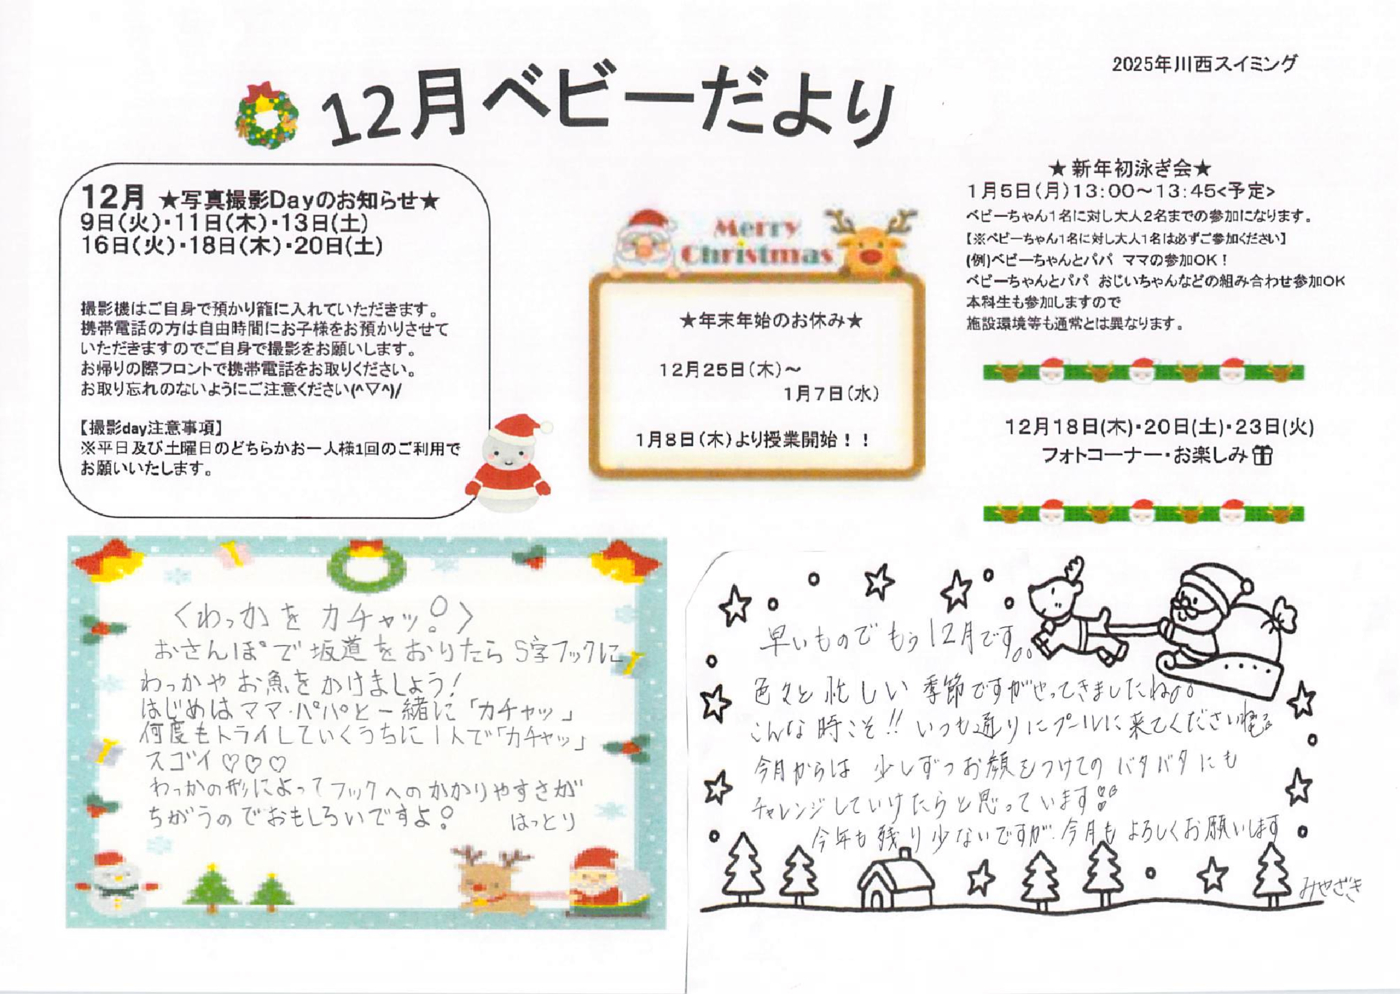 2025年川西スイミング
12月ベビーだより
12月 ★写真撮影Dayのお知らせ★
9日(火)・11日(木)・13日(土)
16日(火)・18日(木)・20日(土)
撮影機はご自身で預かり籠に入れていただきます。
携帯電話の方は自由時間にお子様をお預かりさせて
いただきますのでご自身で撮影をお願いします。
お帰りの際フロントで携帯電話をお取りください。
お取り忘れのないようにご注意ください(^▽^)/
【撮影day注意事項】
※平日及び土曜日のどちらかお一人様1回のご利用で
お願いいたします。
Merry
Christmas
★年末年始のお休み★
12月25日(木)～
1月7日(水)
1月8日(木)より授業開始！！
★新年初泳ぎ会★
1月5日(月)13:00～13:45<予定>
ベビーちゃん1名に対し大人2名までの参加になります。
【※ベビーちゃん1名に対し大人1名は必ずご参加ください】
(例)ベビーちゃんとパパ ママの参加OK！
ベビーちゃんとパパ おじいちゃんなどの組み合わせ参加OK
本科生も参加しますので
施設環境等も通常とは異なります。
12月18日(木)・20日(土)・23日(火)
フォトコーナー・お楽しみ
〈わっかをカチャッ!〉
おさんぽで坂道をおりたらS字フックに
わっかやお魚をかけましょう!
はじめはママ・パパと一緒に「カチャッ」
何度もトライしていくうちに1人で「カチャッ」
スゴイ♡♡♡
わっかの形によってフックへのかかりやすさが
ちがうのでおもしろいですよ!
はっとり
早いものでもう12月です。。
色々と忙しい季節ですがやってきましたね。。
こんな時こそ!!いつも通りにプールに来てくださいね
今月からは少しずつお顔をつけてのバタバタにも
チャレンジしていけたらと思っています!!
今年も残り少ないですが、今月もよろしくお願いします
みやざき